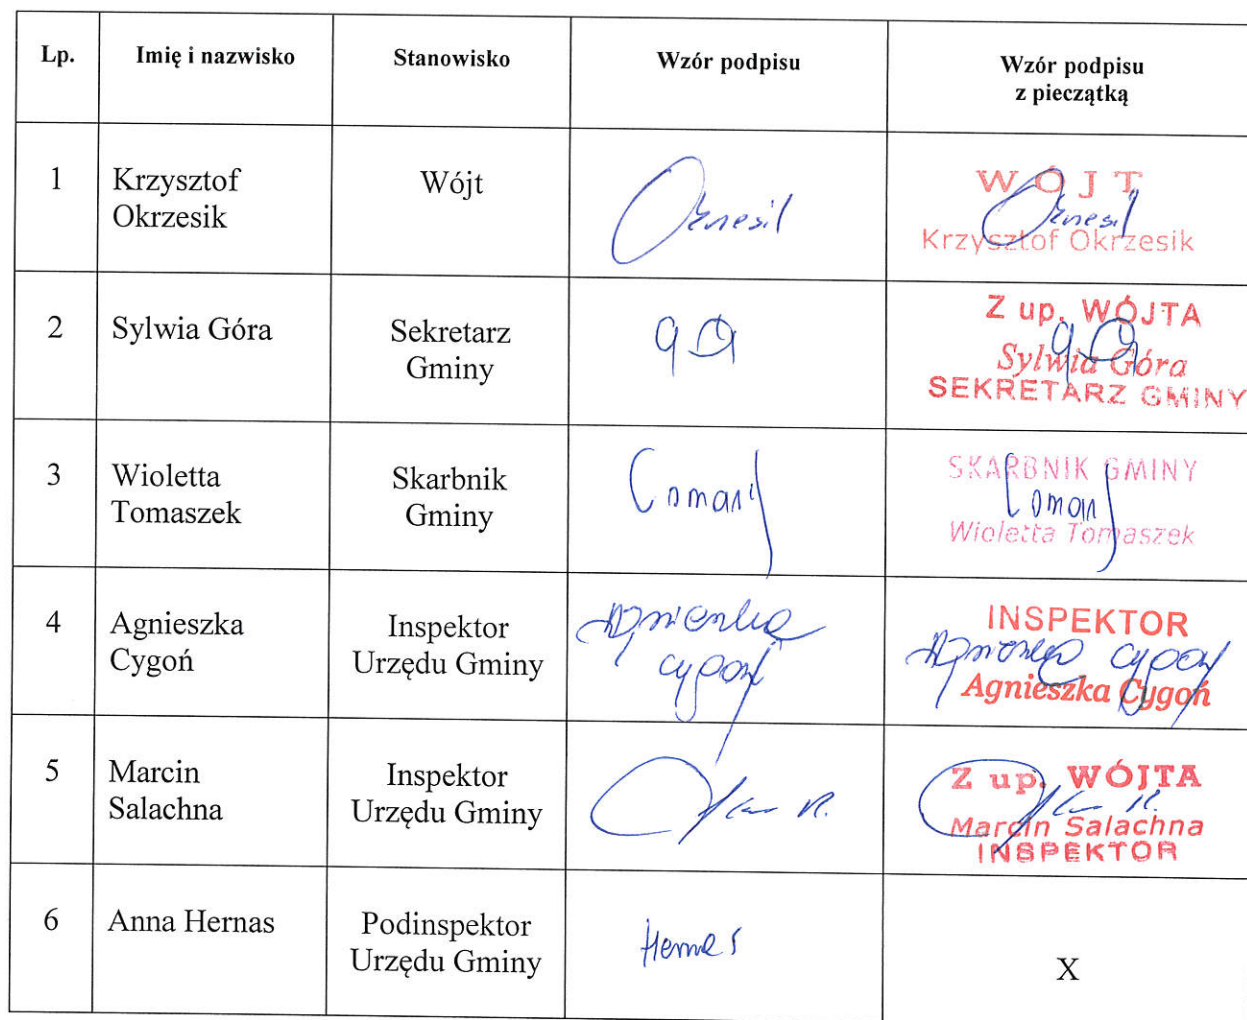 Lp.
Imię i nazwisko
Stanowisko
Wzór podpisu
Wzór podpisu
z pieczątką
1
Krzysztof
Okrzesik
Wójt
WÓJT
Krzysztof Okrzesik
2
Sylwia Góra
Sekretarz
Gminy
Z up. WÓJTA
Sylwia Góra
SEKRETARZ GMINY
3
Wioletta
Tomaszek
Skarbnik
Gminy
SKARBNIK GMINY
Wioletta Tomaszek
4
Agnieszka
Cygoń
Inspektor
Urzędu Gminy
Agnieszka
Cygoń
INSPEKTOR
Agnieszka Cygoń
Agnieszka Cygoń
5
Marcin
Salachna
Inspektor
Urzędu Gminy
Z up. WÓJTA
Marcin Salachna
INSPEKTOR
6
Anna Hernas
Podinspektor
Urzędu Gminy
Hernas
X